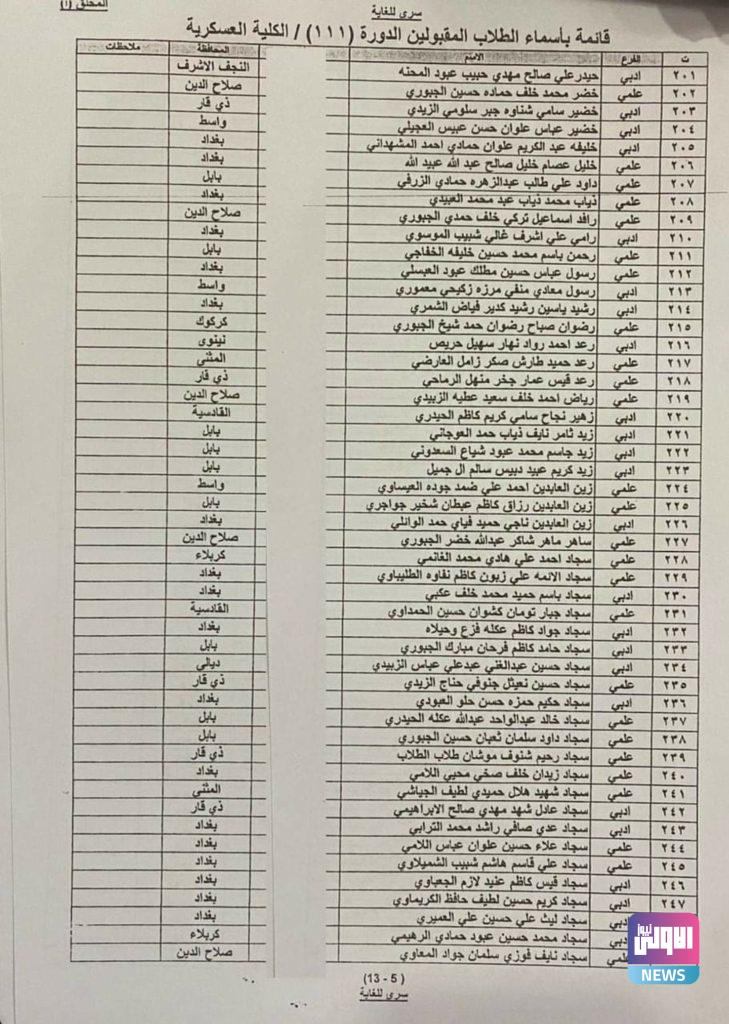 سري للغاية
الملحق (أ)
قائمة بأسماء الطلاب المقبولين الدورة (١١١) / الكلية العسكرية
ت الفرع الاسم المحافظة ملاحظات
٢٠١ ادبي حيدر علي صالح مهدي حبيب عبود المحنه النجف الاشرف
٢٠٢ علمي خضر محمد خلف حماده حسين الجبوري صلاح الدين
٢٠٣ ادبي خضير سامي شناوه جبر سلومي الزيدي ذي قار
٢٠٤ ادبي خضير عباس علوان حسن عبيس العجيلي واسط
٢٠٥ ادبي خليفه عبد الكريم علوان حمادي احمد المشهداني بغداد
٢٠٦ علمي خليل عصام خليل صالح عبد الله عبيد الله بغداد
٢٠٧ علمي داود علي طالب عبدالزهره حمادي الزرفي بابل
٢٠٨ علمي ذياب محمد ذياب عبد محمد العبيدي بغداد
٢٠٩ علمي رافد اسماعيل تركي خلف حمدي الجبوري صلاح الدين
٢١٠ ادبي رامي علي اشرف غالي شبيب الموسوي بغداد
٢١١ علمي رحمن باسم محمد حسين خليفه الخفاجي بابل
٢١٢ علمي رسول عباس حسين مطلك عبود العبسلي بغداد
٢١٣ ادبي رسول معادي منفي مرزه زكيحي معموري واسط
٢١٤ ادبي رشيد ياسين رشيد كدير فياض الشمري بغداد
٢١٥ علمي رضوان صباح رضوان حمد شيخ الجبوري كركوك
٢١٦ ادبي رعد احمد رواد نهار سهيل حريص نينوى
٢١٧ علمي رعد حميد طارش صكر زامل العارضي المثنى
٢١٨ علمي رعد قيس عمار جخر منهل الرماحي ذي قار
٢١٩ علمي رياض احمد خلف سعيد عطيه الزبيدي صلاح الدين
٢٢٠ ادبي زهير نجاح سامي كريم كاظم الحيدري القادسية
٢٢١ ادبي زيد ثامر نايف ذياب حمد العوجاني بابل
٢٢٢ ادبي زيد جاسم محمد عبود شياع السعدوني بابل
٢٢٣ ادبي زيد كريم عبيد دبيس سالم ال جميل بابل
٢٢٤ علمي زين العابدين احمد علي ضمد جوده العيساوي واسط
٢٢٥ علمي زين العابدين رزاق كاظم عبطان شخير جواجري بابل
٢٢٦ ادبي زين العابدين ناجي حميد فياي حمد الوائلي بغداد
٢٢٧ علمي ساهر ماهر شاكر عبدالله خضر الجبوري صلاح الدين
٢٢٨ علمي سجاد احمد علي هادي محمد الغانمي كربلاء
٢٢٩ علمي سجاد الائمه علي زبون كاظم نفاوه الطليباوي بغداد
٢٣٠ ادبي سجاد باسم حميد محمد خلف عكبي بغداد
٢٣١ علمي سجاد جبار تومان كشوان حسين الحمداوي القادسية
٢٣٢ ادبي سجاد جواد كاظم عكله فزع وحيلاه بغداد
٢٣٣ ادبي سجاد حامد كاظم فرحان مبارك الجبوري بابل
٢٣٤ ادبي سجاد حسين عبدالغني عبدعلي عباس الزبيدي ديالى
٢٣٥ علمي سجاد حسين نعيثل جنوفي حناج الزيدي ذي قار
٢٣٦ ادبي سجاد حكيم حمزه حسن حلو العبودي بغداد
٢٣٧ علمي سجاد خالد عبدالواحد عبدالله عكله الحيدري بابل
٢٣٨ علمي سجاد داود سلمان ثعبان حسين الجبوري بابل
٢٣٩ علمي سجاد رحيم شنوف موشان طلاب الطلاب ذي قار
٢٤٠ علمي سجاد زيدان خلف صخي محيي اللامي بغداد
٢٤١ علمي سجاد شهيد هلال حميدي لطيف الجياشي المثنى
٢٤٢ ادبي سجاد عادل شهد مهدي صالح الابراهيمي ذي قار
٢٤٣ ادبي سجاد عدي صافي راشد محمد الترابي بغداد
٢٤٤ علمي سجاد علاء حسين علوان عباس اللامي بغداد
٢٤٥ علمي سجاد علي قاسم هاشم شبيب الشميلاوي بغداد
٢٤٦ ادبي سجاد قيس كاظم عنيد لازم الجعباوي بغداد
٢٤٧ ادبي سجاد كريم حسين لطيف حافظ الكريماوي بغداد
ادبي سجاد ليث علي حسين علي العميري بغداد
ادبي سجاد محمد حسين عبود حمادي الرهيمي كربلاء
علمي سجاد نايف فوزي سلمان جواد المعاوي صلاح الدين
(5 - 13)
سري للغاية
الاولى نيوز
NEWS